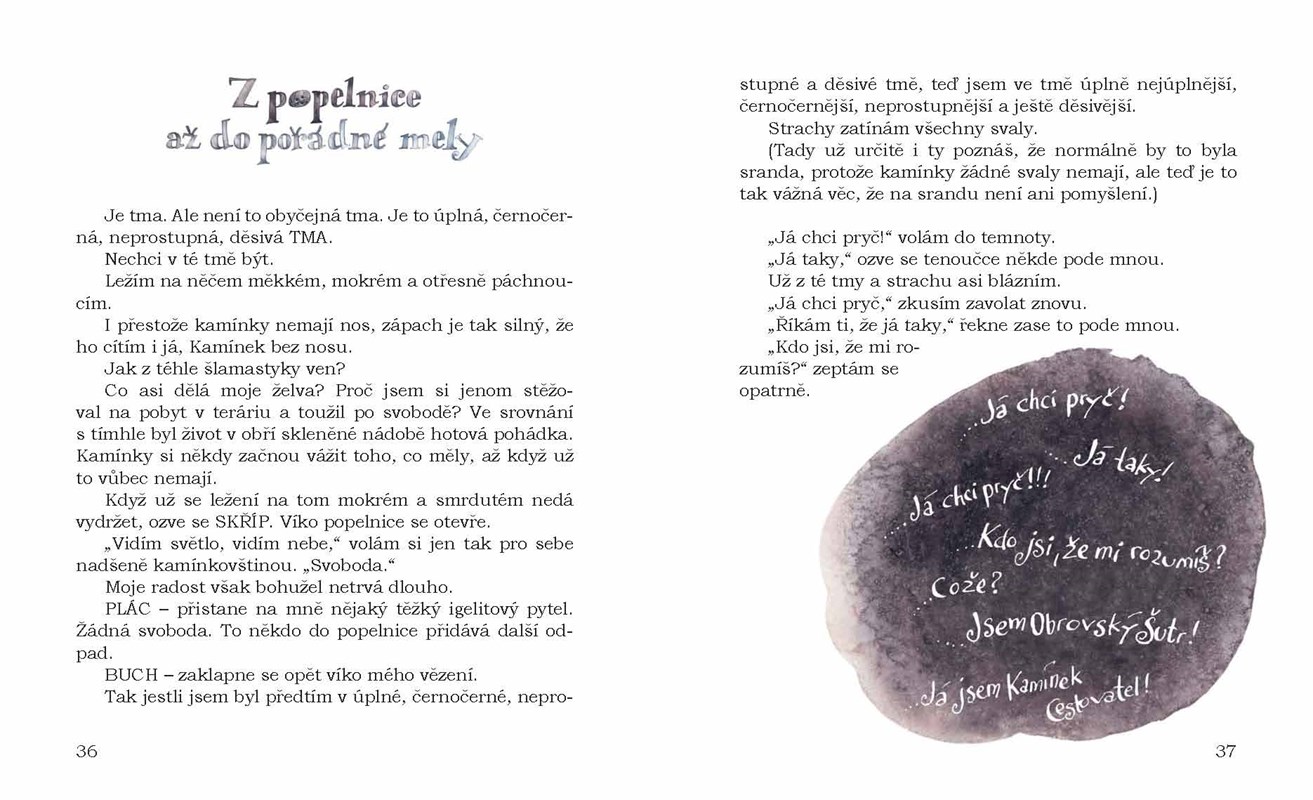 Z popelnice
až do pořádné mely
Je tma. Ale není to obyčejná tma. Je to úplná, černočer-
ná, neprostupná, děsivá TMA.
Nechci v té tmě být.
Ležím na něčem měkkém, mokrém a otřesně páchnou-
cím.
I přestože kamínky nemají nos, zápach je tak silný, že
ho cítím i já, Kamínek bez nosu.
Jak z téhle šlamastyky ven?
Co asi dělá moje želva? Proč jsem si jenom stěžo-
val na pobyt v teráriu a toužil po svobodě? Ve srovnání
s tímhle byl život v obří skleněné nádobě hotová pohádka.
Kamínky si někdy začnou vážit toho, co měly, až když už
to vůbec nemají.
Když už se ležení na tom mokrém a smrdutém nedá
vydržet, ozve se SKŘÍP. Víko popelnice se otevře.
„Vidím světlo, vidím nebe,“ volám si jen tak pro sebe
nadšeně kamínkovštinou. „Svoboda.“
Moje radost však bohužel netrvá dlouho.
PLÁC – přistane na mně nějaký těžký igelitový pytel.
Žádná svoboda. To někdo do popelnice přidává další od-
pad.
BUCH – zaklapne se opět víko mého vězení.
Tak jestli jsem byl předtím v úplné, černočerné, nepro-
36
stupné a děsivé tmě, teď jsem ve tmě úplně nejúplnější,
černočernější, neprostupnější a ještě děsivější.
Strachy zatínám všechny svaly.
(Tady už určitě i ty poznáš, že normálně by to byla
sranda, protože kamínky žádné svaly nemají, ale teď je to
tak vážná věc, že na srandu není ani pomyšlení.)
„Já chci pryč!“ volám do temnoty.
„Já taky,“ ozve se tenoučce někde pode mnou.
Už z té tmy a strachu asi blázním.
„Já chci pryč,“ zkusím zavolat znovu.
„Říkám ti, že já taky,“ řekne zase to pode mnou.
„Kdo jsi, že mi ro-
zumíš?“ zeptám se
opatrně.
...Já chci pryč!
...Já taky!
...Já chci pryč!!!
...Kdo jsi, že mi rozumíš?
...Cože?
...Jsem Obrovský Šutr!
...Já jsem Kamínek
Cestovatel!
37